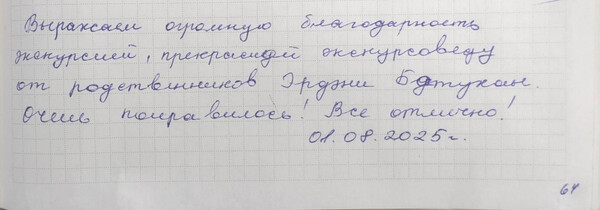 Выражаем огромную благодарность
экскурсией, прекрасной экскурсоведу
от родственников Эрдэни
Очень понравилось! Все отлично!
01.08.2025г.
64